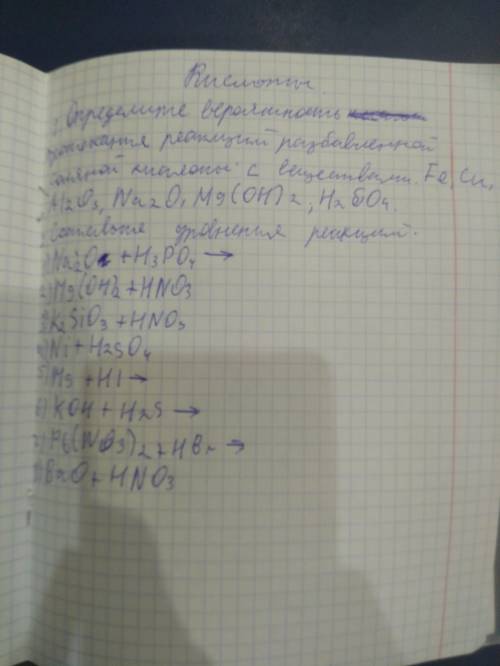 Кислоты.
1. Определите вероятность
протекания реакций разбавленной
соляной кислоты с веществами. Fe, Cu,
Al2O3, Na2O, Mg(OH)2, H2SO4.
2. Составьте уравнения реакций.
1) Na2O + H3PO4 →
2) Mg(OH)2 + HNO3
3) K2SiO3 + HNO3
4) Ni + H2SO4
5) Mg + HI →
6) KOH + H2S →
7) Pb(NO3)2 + HBr →
8) BaO + HNO3